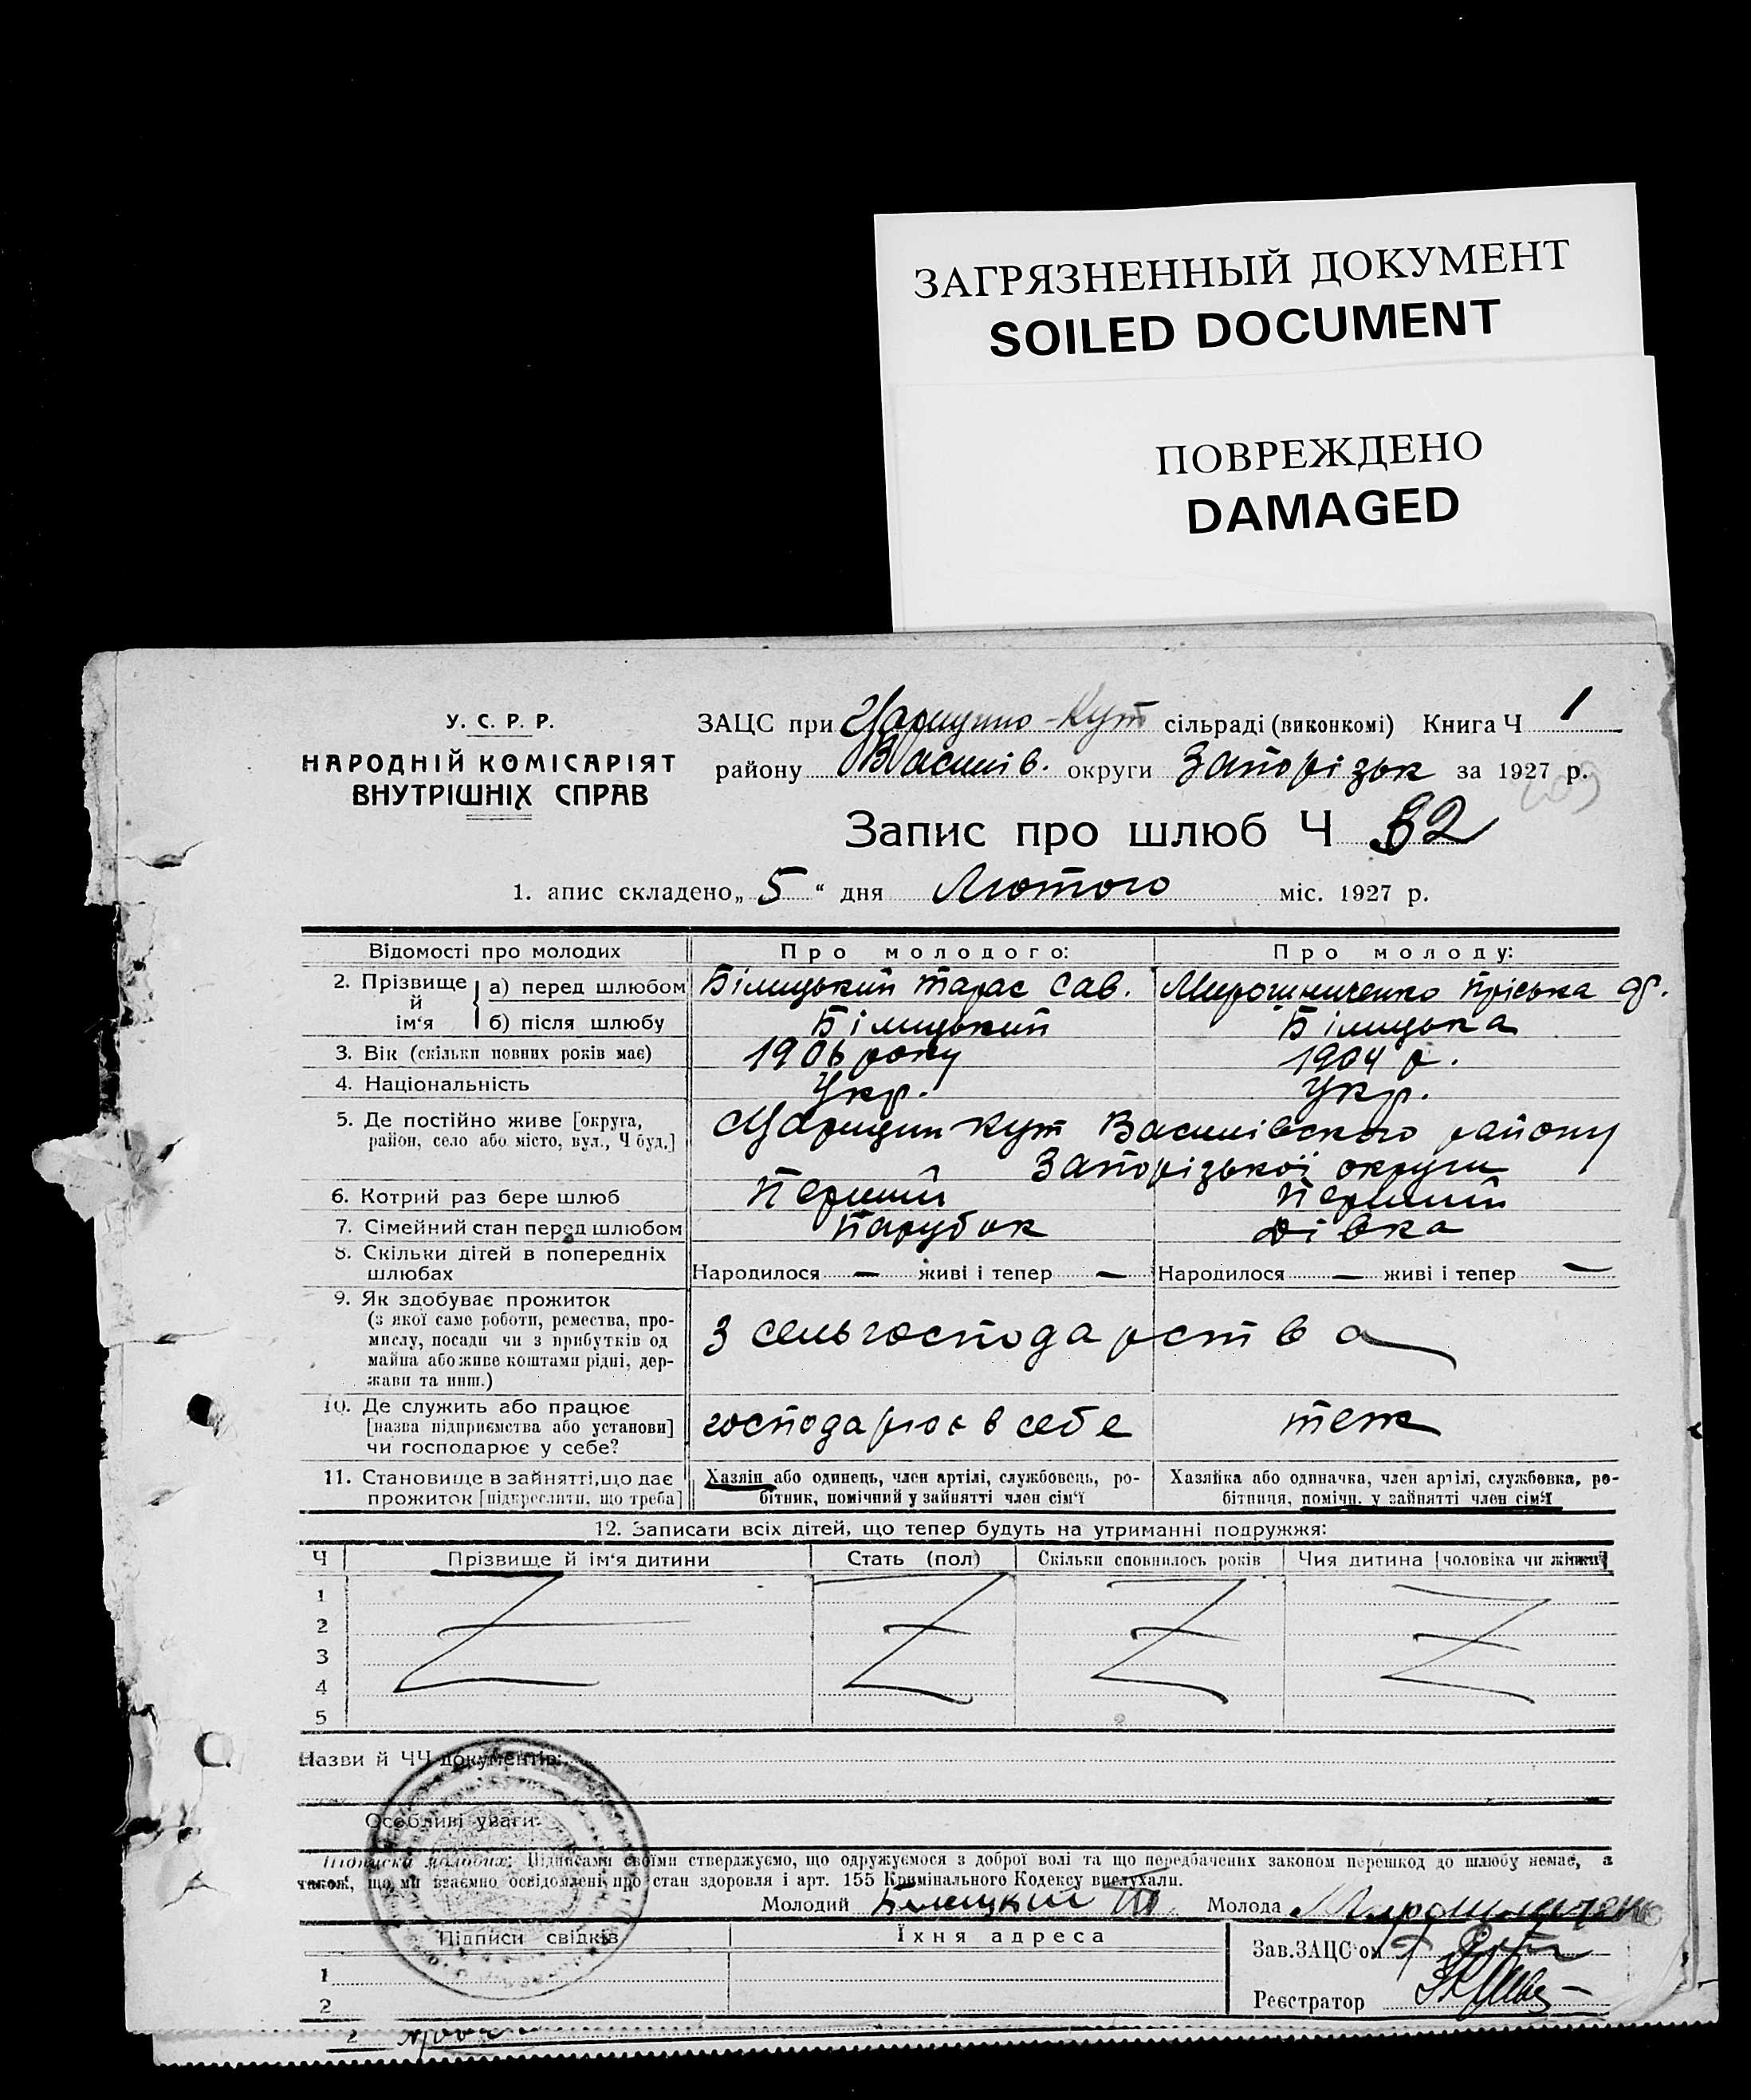 ЗАГРЯЗНЕННЫЙ ДОКУМЕНТ
SOILED DOCUMENT
ПОВРЕЖДЕНО
DAMAGED
У. С. Р. Р.
НАРОДНІЙ КОМІСАРІЯТ
ВНУТРІШНІХ СПРАВ
ЗАЦС при Царицино-Кут сільраді (виконкомі) Книга Ч 1
району Василів. округи Запорізьк за 1927 р.
Запис про шлюб Ч 32
1. апис складено „ 5 “ дня Лютого міс. 1927 р.
Відомості про молодих Про молодого: Про молоду:
2. Прізвище й ім‘я а) перед шлюбом Білицький Тарас Сав. Мирошниченко Пріська
б) після шлюбу Білицький Білицька
3. Вік (скільки повних років має) 1906 року 1904 р.
4. Національність Укр. Укр.
5. Де постійно живе [округа, район, село або місто, вул., Ч буд.] Царицин Кут Василівського району
Запорізької округи
6. Котрий раз бере шлюб Перший Перший
7. Сімейний стан перед шлюбом Парубок Дівка
8. Скільки дітей в попередніх шлюбах Народилося — живі і тепер — Народилося — живі і тепер —
9. Як здобуває прожиток
(з якої саме роботи, ремества, про-
мислу, посади чи з прибутків од
майна або живе коштами рідні, дер-
жави та инш.) З сельгосподарства
10. Де служить або працює
[назва підприємства або установи]
чи господарює у себе? господарює в себе теж
11. Становище в зайнятті, що дає
прожиток [підкреслити, що треба]
Хазяїн або одинець, член артілі, службовець, ро-
бітник, помічний у зайнятті член сім‘ї
Хазяйка або одиначка, член артілі, службовка, ро-
бітниця, помічн. у зайнятті член сім‘ї
12. Записати всіх дітей, що тепер будуть на утриманні подружжя:
Ч Прізвище й ім‘я дитини Стать (пол) Скільки сповнилось років Чия дитина [чоловіка чи жінки]
1
2
3
4
5
Назви й ЧЧ документів:
Особливі уваги:
Підписка молодих: Підписами своїми стверджуємо, що одружуємося з доброї волі та що передбачених законом перешкод до шлюбу немає, а
також, що ми взаємно освідомлені про стан здоровля і арт. 155 Кримінального Кодексу вислухали.
Молодий Билицкий Т Молода Мирошниченко
Підписи свідків Їхня адреса
Зав. ЗАЦС‘ом
1
2
Реєстратор
2